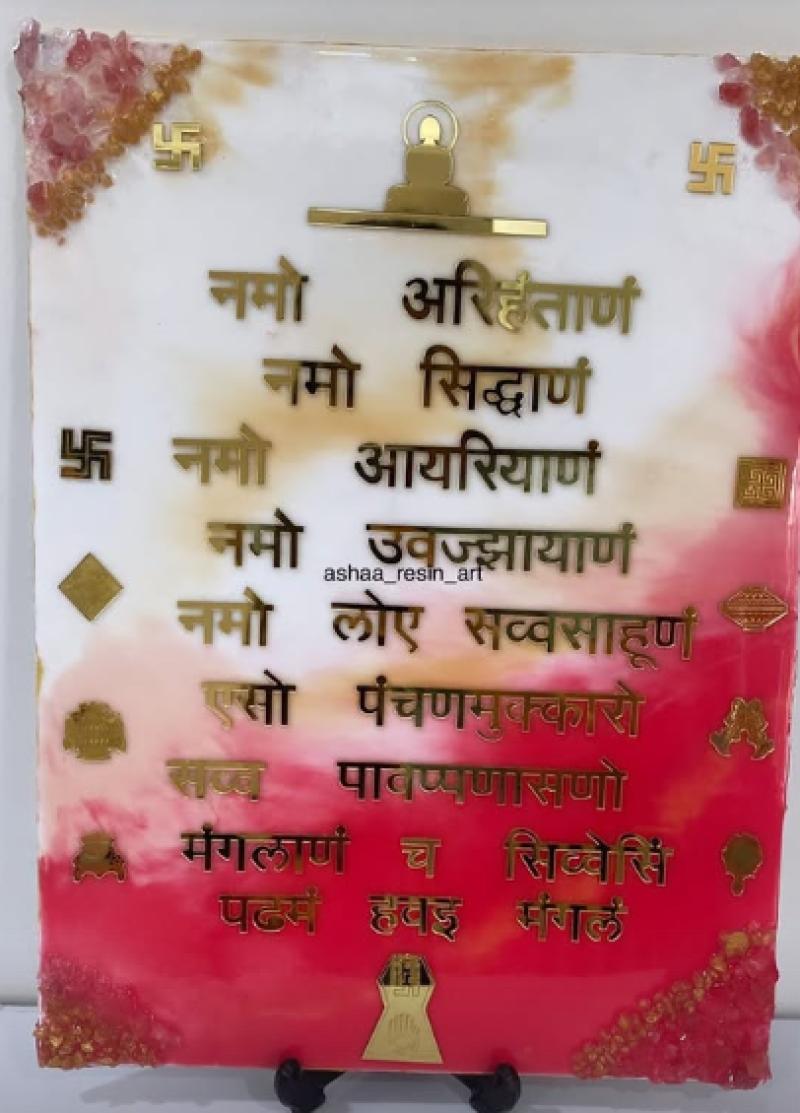 नमो अरिहंताणं
नमो सिद्धाणं
नमो आयरियाणं
नमो उवज्झायाणं
ashaa_resin_art
नमो लोए सव्वसाहूणं
एसो पंचणमुक्कारो
सव्व पावप्पणासणो
मंगलाणं च सिव्वेसिं
पढमं हवइ मंगलं